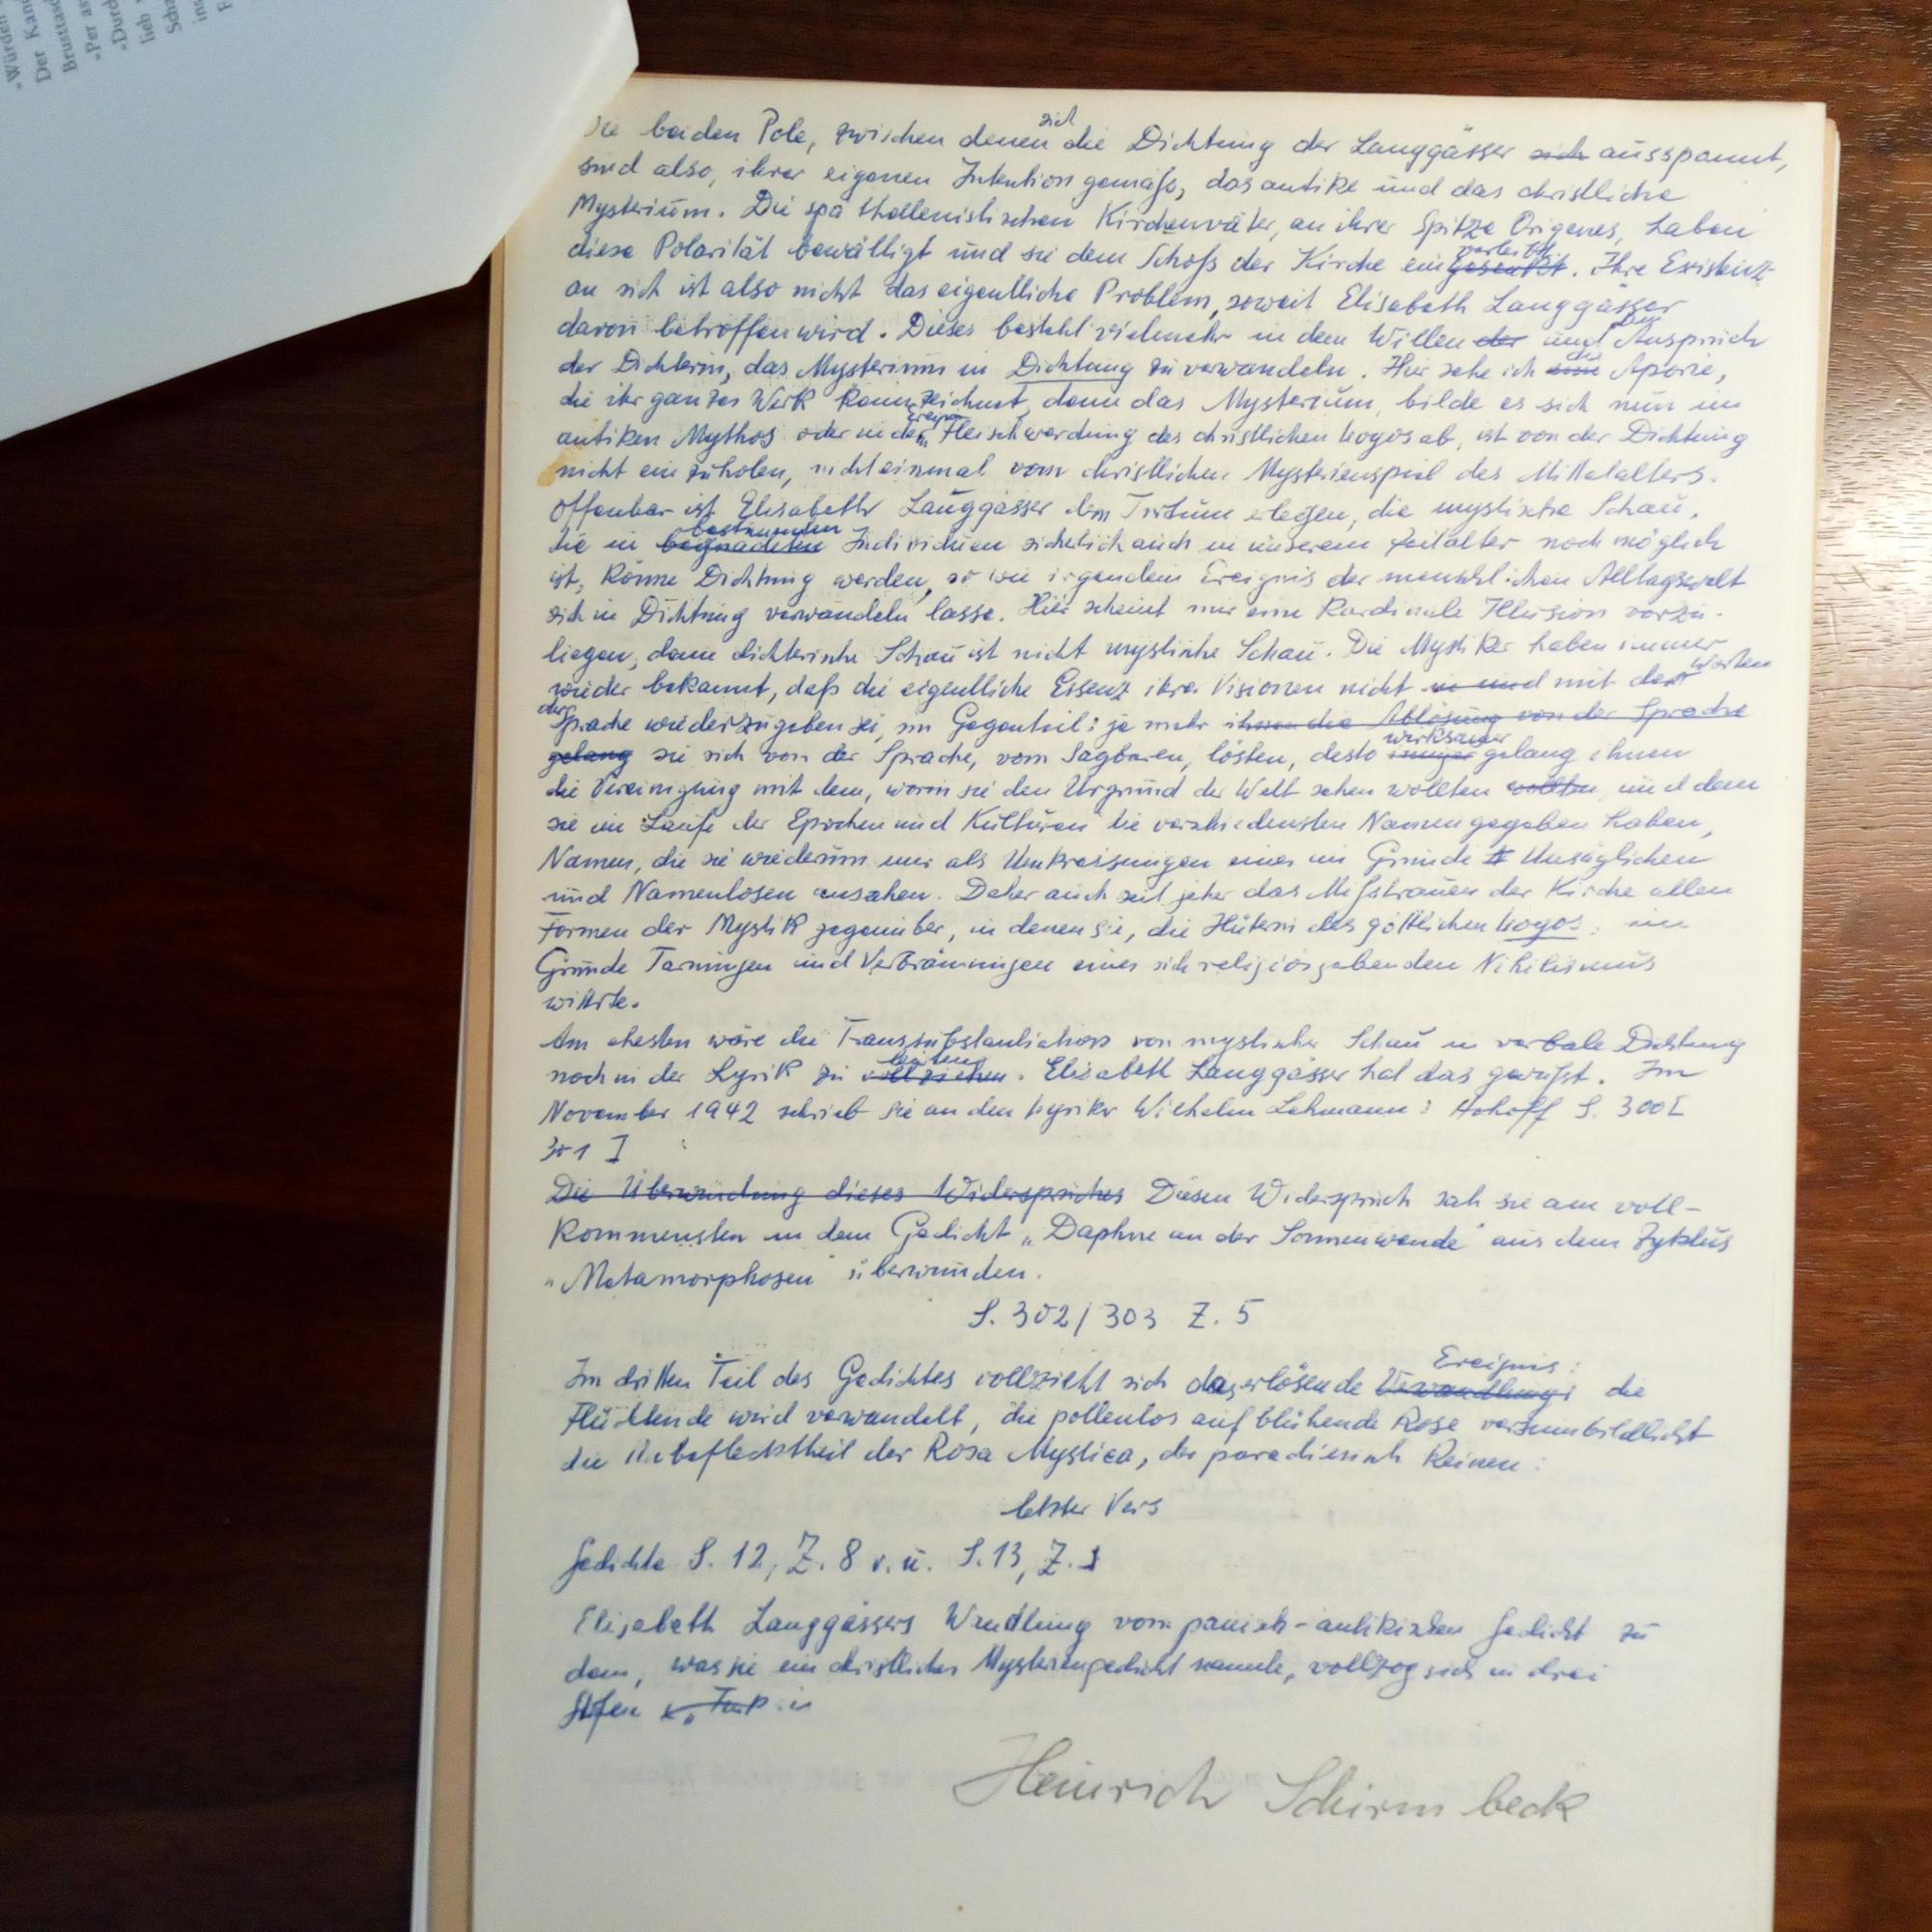 "Würden
Der Kan
Brustta
"Per as
"Durch
lieb
Sch
ins
F
Die beiden Pole, zwischen denen sich die Dichtung der Langgässer sich ausspannt,
sind also, ihrer eigenen Intention gemäß, das antike und das christliche
Mysterium. Die späthellenistischen Kirchenväter, an ihrer Spitze Origenes, haben
diese Polarität bewältigt und sie dem Schoß der Kirche einverleibt gesenkt. Ihre Existenz
an sich ist also nicht das eigentliche Problem, soweit Elisabeth Langgässer
davon betroffen wird. Dieses besteht vielmehr in dem Willen der und dem Anspruch
der Dichterin, das Mysterium in Dichtung zu verwandeln. Hier sehe ich eine die Aporie,
die ihr ganzes Werk kennzeichnet, denn das Mysterium, bilde es sich nun im
antiken Mythos oder in der Fleischwerdung des christlichen Logos ab, ist von der Dichtung
nicht einzuholen, nicht einmal vom christlichen Mysterienspiel des Mittelalters.
Offenbar ist Elisabeth Langgässer dem Irrtum erlegen, die mystische Schau,
die in begnadeten bestimmten Individuen sicherlich auch in unserem Zeitalter noch möglich
ist, könne Dichtung werden, so wie irgendein Ereignis der menschlichen Alltagswelt
sich in Dichtung verwandeln lasse. Hier scheint mir eine kardinale Illusion vorzu-
liegen, denn dichterische Schau ist nicht mystische Schau. Die Mystiker haben immer
wieder bekannt, daß die eigentliche Essenz ihrer Visionen nicht in und mit den Worten
der Sprache wiederzugeben sei, im Gegenteil: je mehr ihnen die Ablösung von der Sprache
gelang sie sich von der Sprache, vom Sagbaren, lösten, desto inniger wirksamer gelang ihnen
die Vereinigung mit dem, worin sie den Urgrund der Welt sehen wollten wollten, und dem
sie im Laufe der Epochen und Kulturen die verschiedensten Namen gegeben haben,
Namen, die sie wiederum nur als Umkreisungen eines im Grunde Unsäglichen
und Namenlosen ansahen. Daher auch seit jeher das Mißtrauen der Kirche allen
Formen der Mystik gegenüber, in denen sie, die Hüterin des göttlichen Logos, im
Grunde Tarnungen und Verbrämungen eines sich religiös gebenden Nihilismus
witterte.
Am ehesten wäre die Transsubstantiation von mystischer Schau in verbale Dichtung
noch in der Lyrik zu vollziehen leisten. Elisabeth Langgässer hat das gewußt. Im
November 1942 schrieb sie an den Lyriker Wilhelm Lehmann: Hohoff S. 300 [
301 ]
Die Überwindung dieses Widerspruches Diesen Widerspruch sah sie am voll-
kommensten in dem Gedicht „Daphne an der Sonnenwende" aus dem Zyklus
„Metamorphosen" überwunden.
S. 302/303 Z. 5
Im dritten Teil des Gedichtes vollzieht sich das erlösende Verwandlung: Ereignis: die
Flüchtende wird verwandelt, die pollenlos aufblühende Rose versinnbildlicht
die Unbeflecktheit der Rosa Mystica, der paradiesisch Reinen:
letzter Vers
Gedichte S. 12, Z. 8 v. u. S. 13, Z.
Elisabeth Langgässers Wandlung vom panisch-antikischen Gedicht zu
dem, was sie ein christliches Mysteriengedicht nannte, vollzog sich in drei
Stufen
Heinrich Schirmbeck